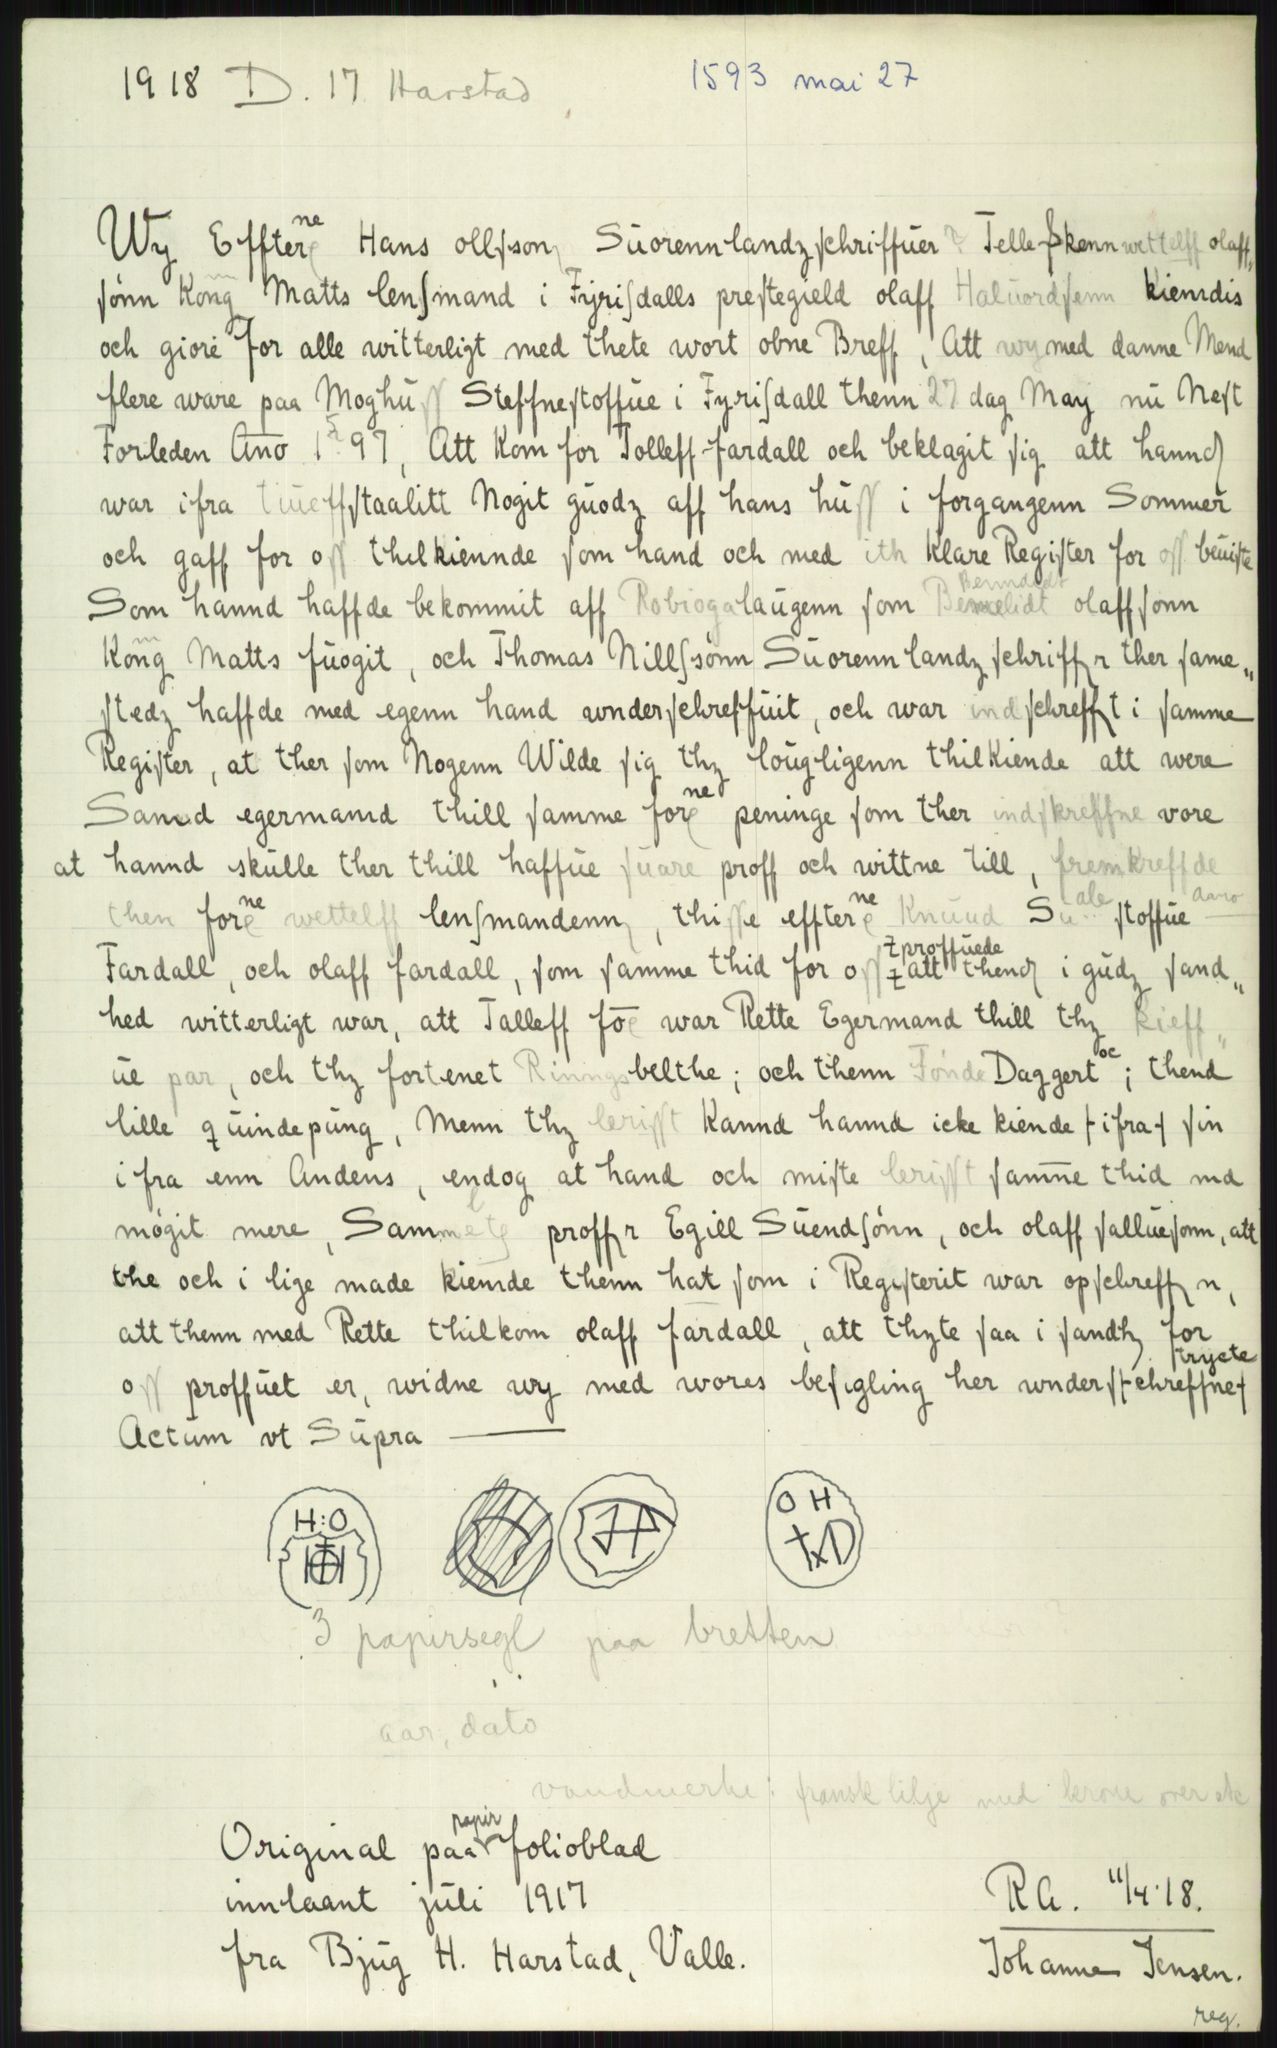 1918 D. 17 Harstad 1593 mai 27
Wy Effterne Hans ollsson Suorennlandz schriffuer ? Telleskenn wettelff olaff„
sönn Kong Matts lensmand i Fyrisdalls prestegield olaff Haluordsenn kiendis
och giore for alle witterligt med thete wort obne Breff, Att wy med danne Mend
flere ware paa Moghuss Steffnestoffue i Fyrisdall thenn 27 dag May nu Nest
Forleden Ano 1597, Att Kom for Tolleff fardall och beklagit sig att hannd
war ifra tiueffstaalitt Nogit guodz aff hans huss i forgangenn Sommer
och gaff for oss thilkiennde som hand och med ith klare Register for oss beuiste
Som hannd haffde bekommit aff Robiogalaugenn som olaffsonn
Kong Matts fuogit, och Thomas Nillssönn Suorennlandz schriffr ther same„
stedz haffde med egenn hand wnderschreffuit, och war indschrefft i samme
Register, at ther som Nogenn Wilde sig thz lougligenn thilkiende att were
Sannd egermannd thill samme forne peninge som ther indskreffne vore
at hannd skulle ther thill haffue suare proff och wittne till, fremkreffde
then forne wettelff lensmandenn, thisse effterne Knuud Su..ale stoffue
Fardall, och olaff fardall, som samme thid for oss proffuede att thend i gudz sand„
hed witterligt war, att Talleff foe war Rette Egermand thill thz kieff„
ue par, och thz fortenet Rinngsbelthe; och thenn Fonde Daggert oc; thend
lille quindepung, Menn thz lerifft Kannd hannd icke kiende ifra sin
ifra enn Andens, endog at hand och miste lerifft samme thid md
mögit mere, Sammeletz proffr Egill Suendsönn, och olaff salluesonn, att
the och i lige made kiennde thenn hat som i Registerit war opschreffn,
att thenn med Rette thilkom olaff fardall, att thzte saa i sandhz for
oss proffuet er, widne wy med wores besigling her wnder schreffne trycte
Actum vt Supra
H:O
O H
3 papirsegl paa bretten
aar, dato
vandmerke: fransk lilje med krone over etc
Original paa papir folioblad
innlaant juli 1917
fra Bjug H. Harstad, Valle.
RA. 11/4.18.
Johanne Jensen.
reg.